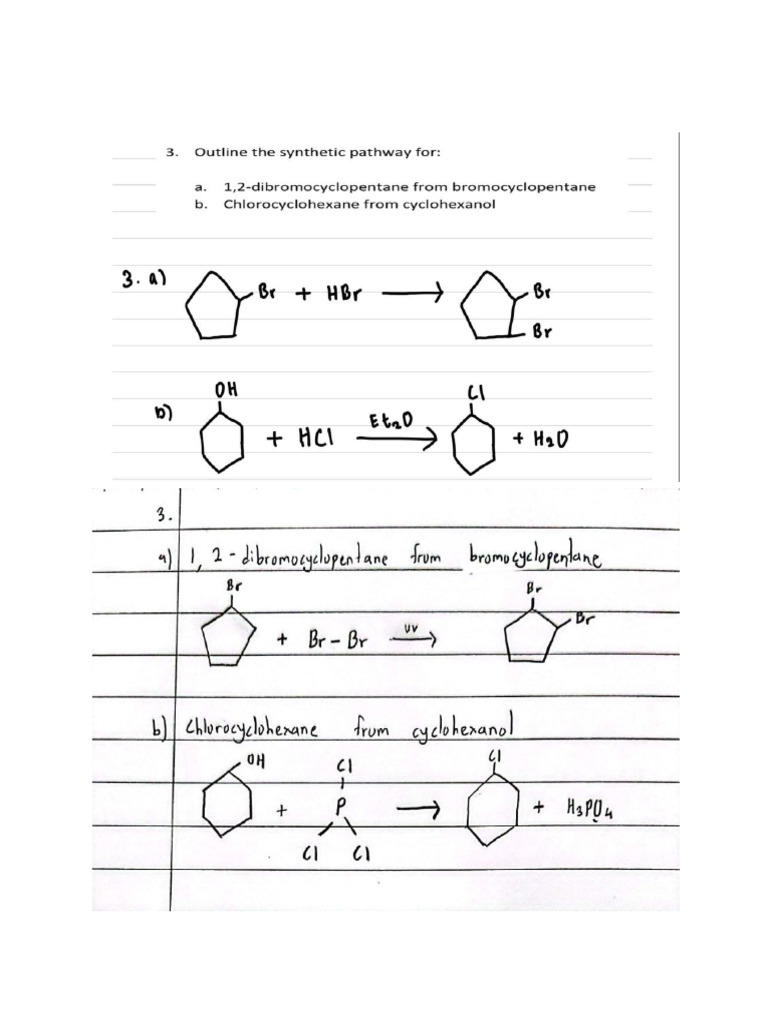 3. Outline the synthetic pathway for:
a. 1,2-dibromocyclopentane from bromocyclopentane
b. Chlorocyclohexane from cyclohexanol
3. a)
Br + HBr → Br
Br
OH
Cl
b)
+ HCl Et₂O → + H₂O
3.
a) 1, 2 - dibromocyclopentane from bromocyclopentane
Br
Br
Br
+ Br – Br UV →
b) Chlorocyclohexane from cyclohexanol
OH
Cl
Cl
+ P → + H₃PO₄
Cl Cl